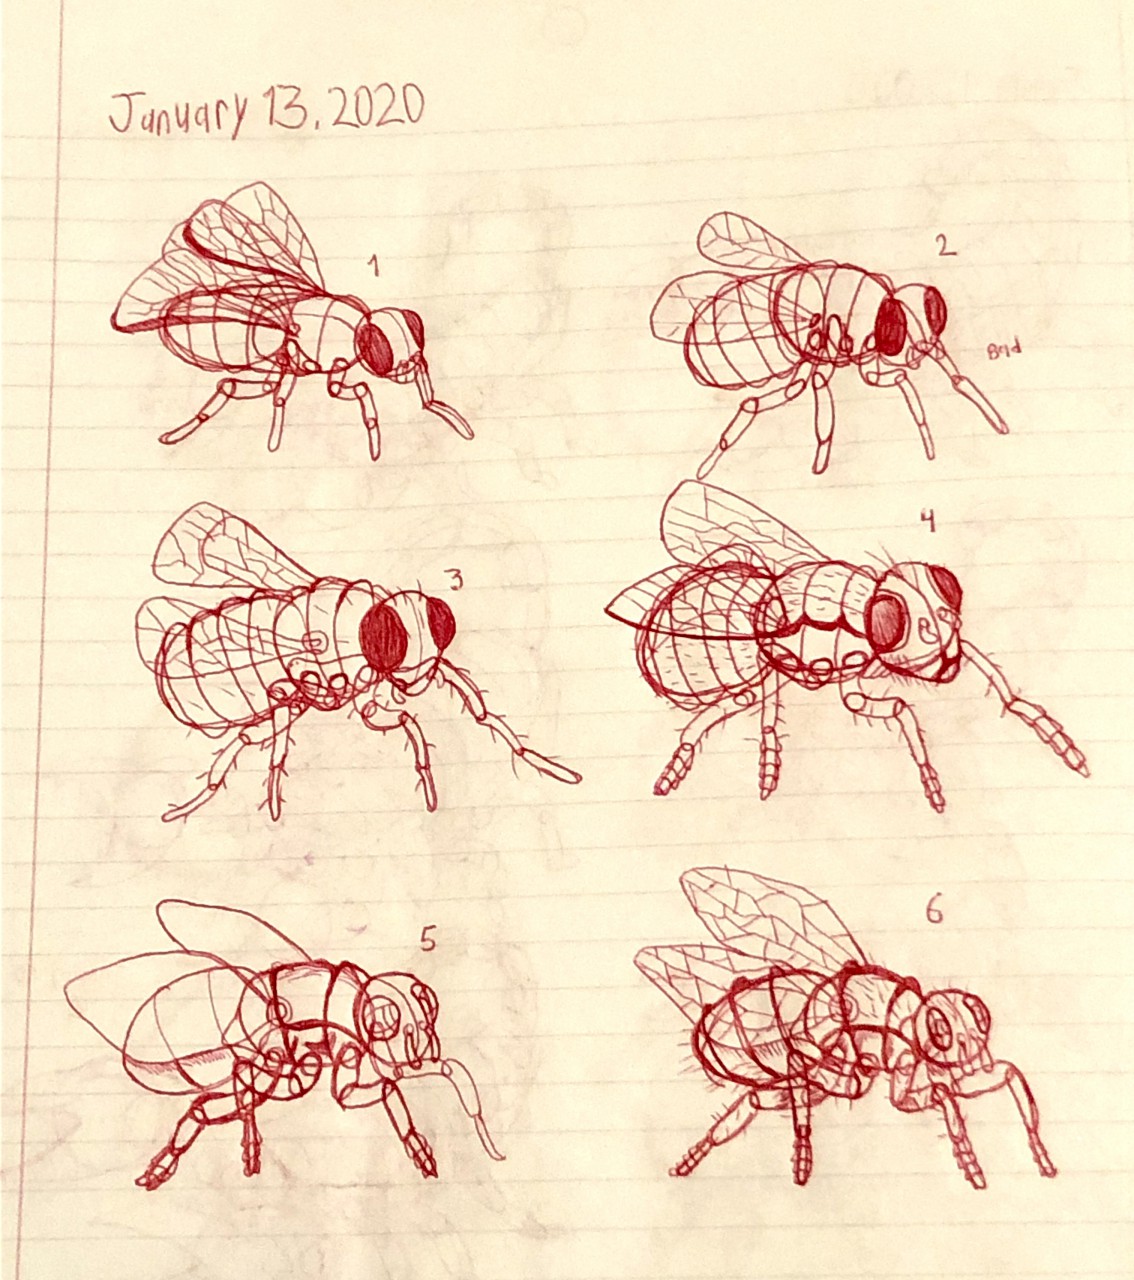 January 13, 2020
1
2
Bad
3
4
5
6